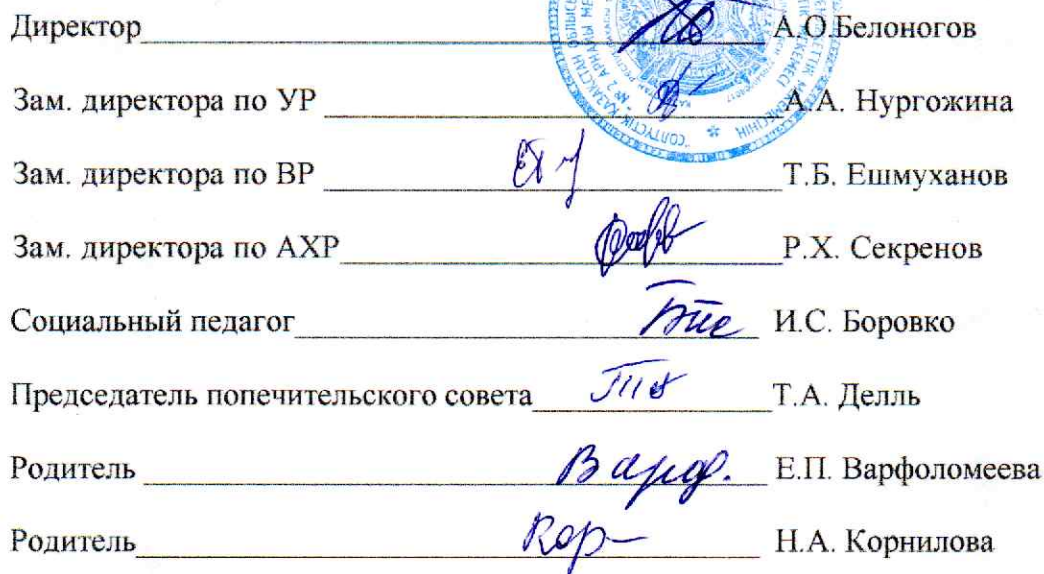 Директор А.О.Белоногов
Зам. директора по УР А.А. Нургожина
Зам. директора по ВР Т.Б. Ешмуханов
Зам. директора по АХР Р.Х. Секренов
Социальный педагог И.С. Боровко
Председатель попечительского совета Т.А. Делль
Родитель Варф. Е.П. Варфоломеева
Родитель Кор Н.А. Корнилова